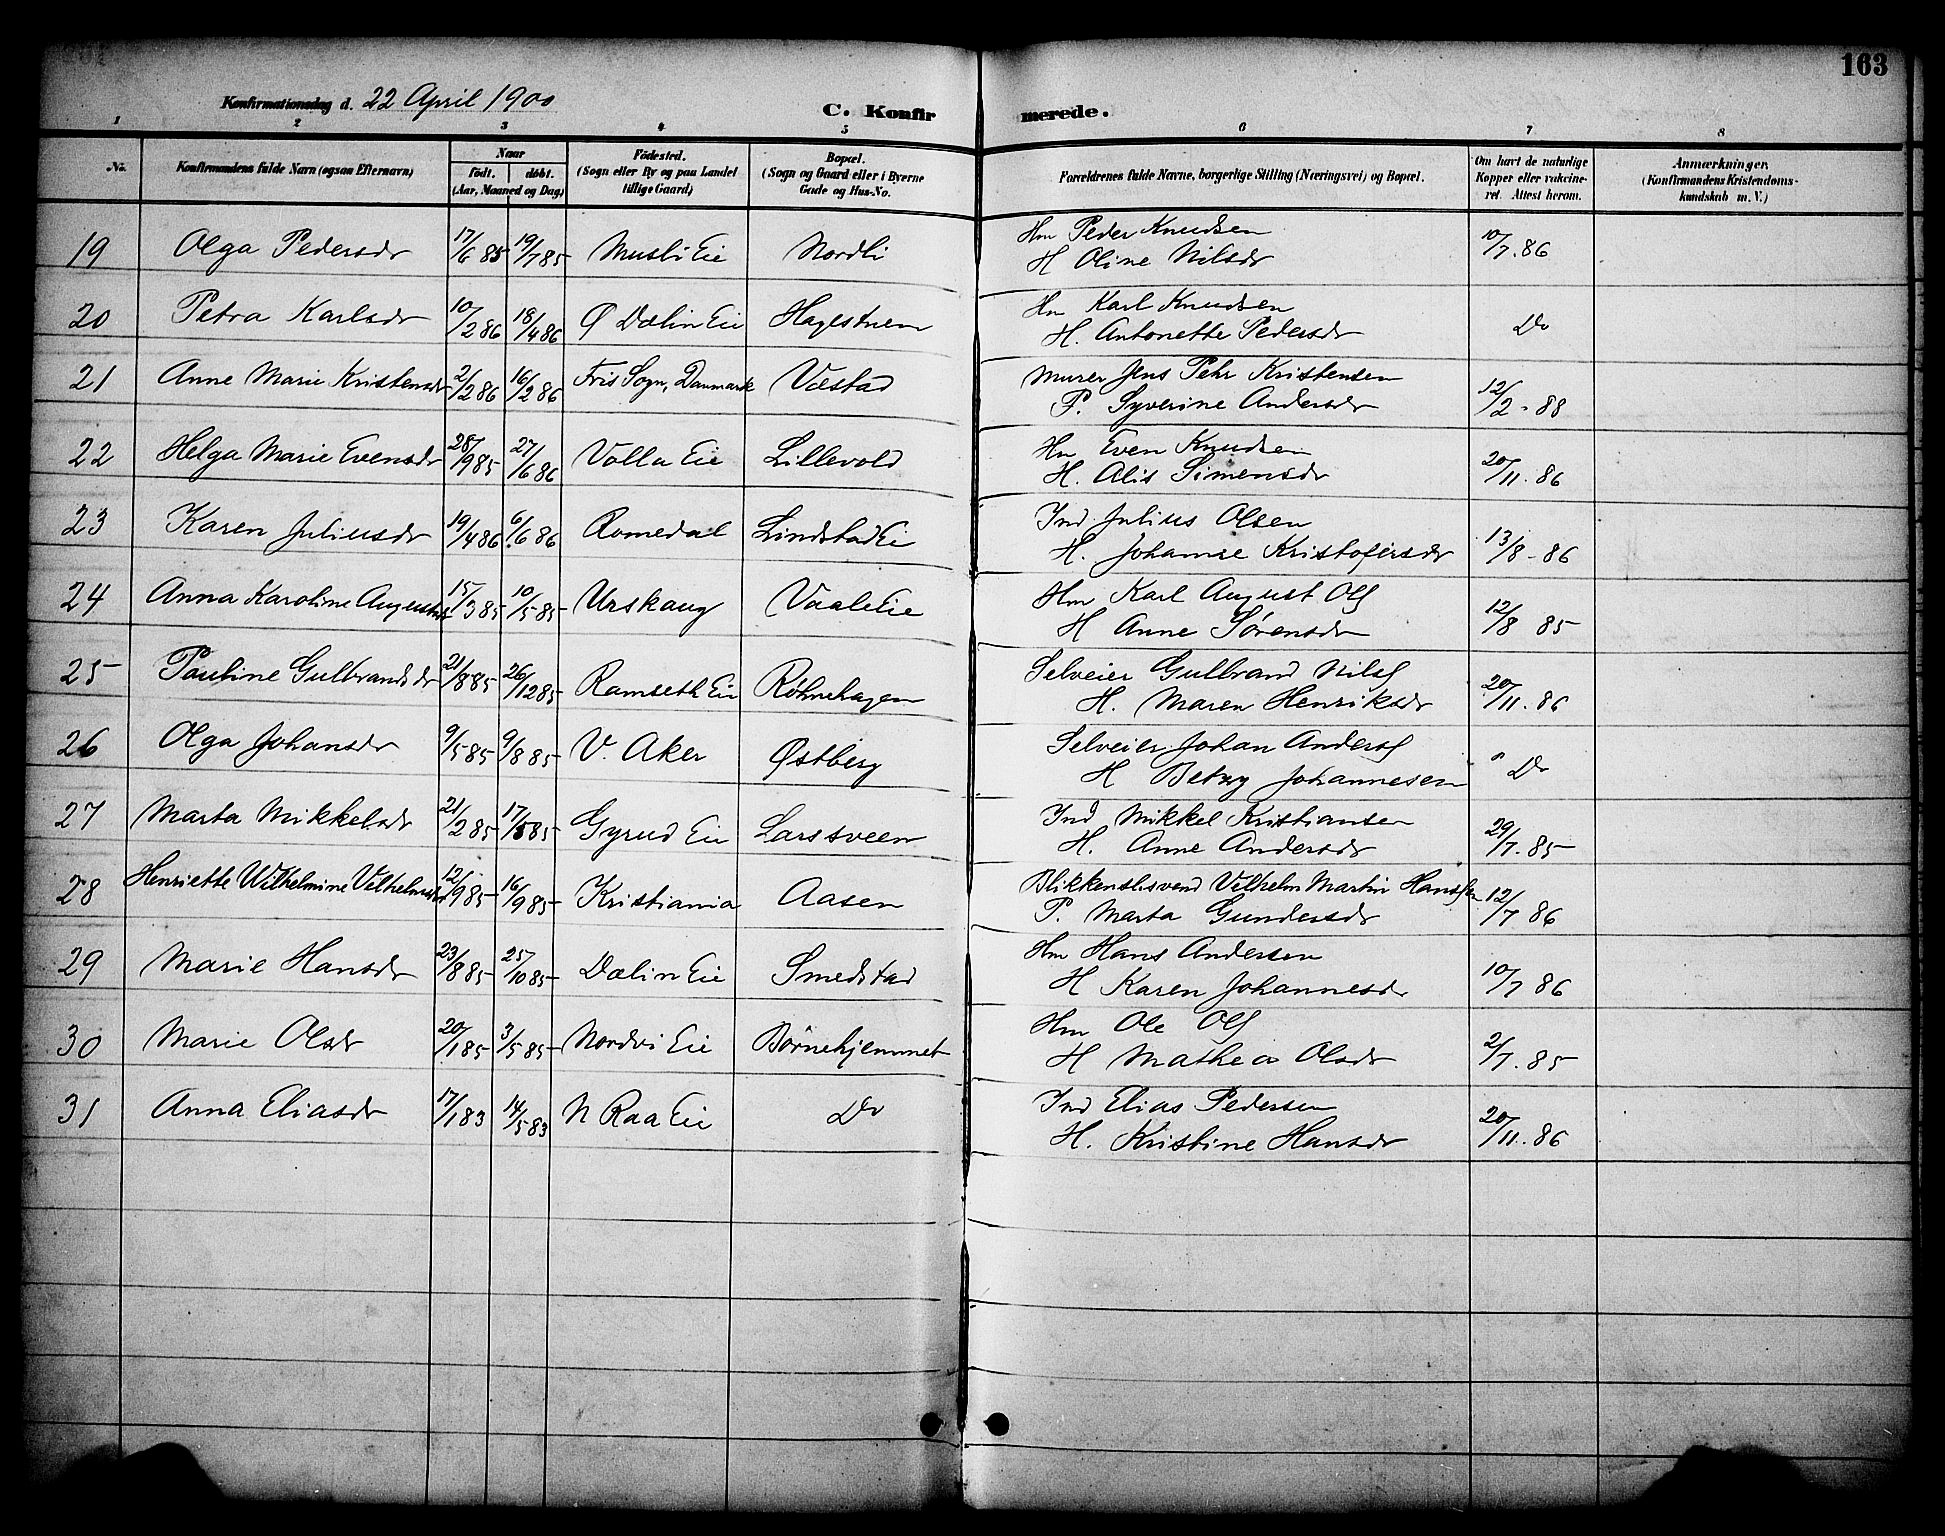 163
Konfirmationsdag d. 22 April 1900
C. Konfirmerede.
1 2 3 4 5 6 7 8
No. Konfirmandens fulde Navn (ogsaa Efternavn) Naar født. døbt. (Aar, Maaned og Dag) Fødested. (Sogn eller By og paa Landet tillige Gaard) Bopæl. (Sogn og Gaard eller i Byerne Gade og Hus-No. Forældrenes fulde Navne, borgerlige Stilling (Næringsvei) og Bopæl. Om havt de naturlige Kopper eller vakcineret. Attest herom. Anmærkninger. (Konfirmandens Kristendomskundskab m. V.)
19 Olga Pedersdr 17/6 85 19/7 85 Musli Eie Nordli Hm Peder Knudsen
H Oline Nilsdr 10/7. 86
20 Petra Karlsdr 10/2 86 18/4 86 Ø Dælin Eie Hagestuen Hm Karl Knudsen
H. Antonette Pedersdr Do
21 Anne Marie Kristensdr 2/2 86 16/2 86 Fris Sogn, Danmark Væstad Murer Jens Pehr Kristensen
P. Syverine Andersdr 12/2 - 88
22 Helga Marie Evensdr 28/9 85 27/6 86 Volla Eie Lillevold Hm Even Knudsen
H. Alis Simensdr 20/11. 86
23 Karen Juliusdr 19/4 86 6/6 86 Romedal Lindstad Eie Ind Julius Olsen
H. Johanne Kristofersdr 13/8 - 86
24 Anna Karoline Augustsdr 15/3 85 10/5 85 Urskaug Vaale Eie Hm Karl August Ols
H Anne Sørensdr 12/8 85
25 Pauline Gulbrandsdr 21/8 85 26/12 85 Ramseth Eie Røhnehagen Selveier Gulbrand Nils
H. Maren Henriksdr 20/11. 86
26 Olga Johansdr 9/5 85 9/8 85 V. Aker Østberg Selveier Johan Anders
H Betzy Johannesen Do
27 Marta Mikkelsdr 21/2 85 17/5 85 Gyrud Eie Larssveen Ind Mikkel Kristiansen
H. Anne Andersdr 29/7. 85
28 Henriette Wilhelmine Vilhelmsdr 12/9 85 16/9 85 Kristiania Aasen Blikkenslsvend Vilhelm Martin Hanssen
P. Marta Gundersdr 12/7 86
29 Marie Hansdr 23/8 85 25/10 85 Dælin Eie Smedstad Hm Hans Andersen
H Karen Johannesdr 10/7 86
30 Marie Olsdr 20/1 85 3/5 85 Nordvi Eie Børnehjemmet Hm Ole Ols
H Mathea Olsdr 2/7. 85
31 Anna Eliasdr 17/1 83 14/5 83 N Raa Eie Do Ind Elias Pedersen
H. Kristine Hansdr 20/11. 86